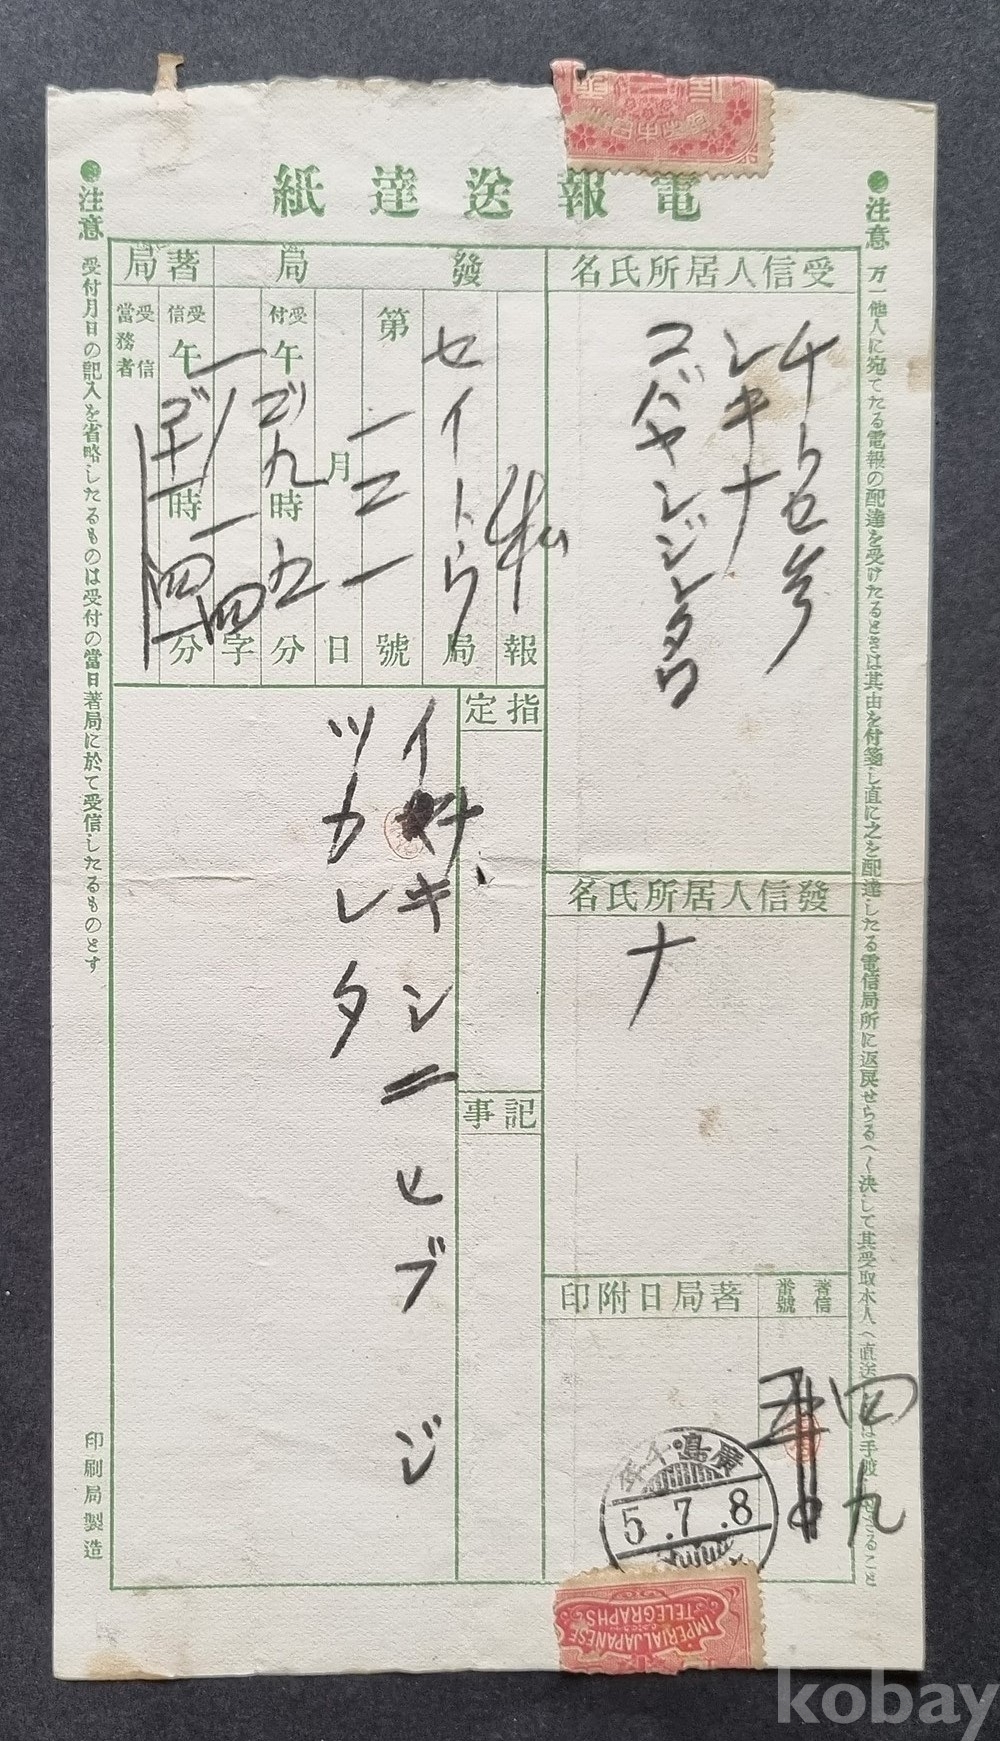 電報送達紙
●注意 万一他人に宛てたる電報の配達を受けたるときは其由を付箋し直に之を配達したる電信局所に返戻せらるへく決して其受取本人へ直送
は手渡
さること
受信人居所氏名
チトセ
シキナ
コバヤシジンタロ
發信人居所氏名
ナ
著信番號
四九
著局日附印
廣島・千年
5.7.8
發局
私報
セイトウ局
第一二一號
月日
受付午ゴ九時五分
一四字
著局
受信午ゴ十一時四分
受信當務者
指定
記事
イサキンニヒブジ
ツカレタ
●注意 受付月日の記入を省略したるものは受付の當日著局に於て受信したるものとす
印刷局製造
IMPERIAL JAPANESE
TELEGRAPHS
kobay